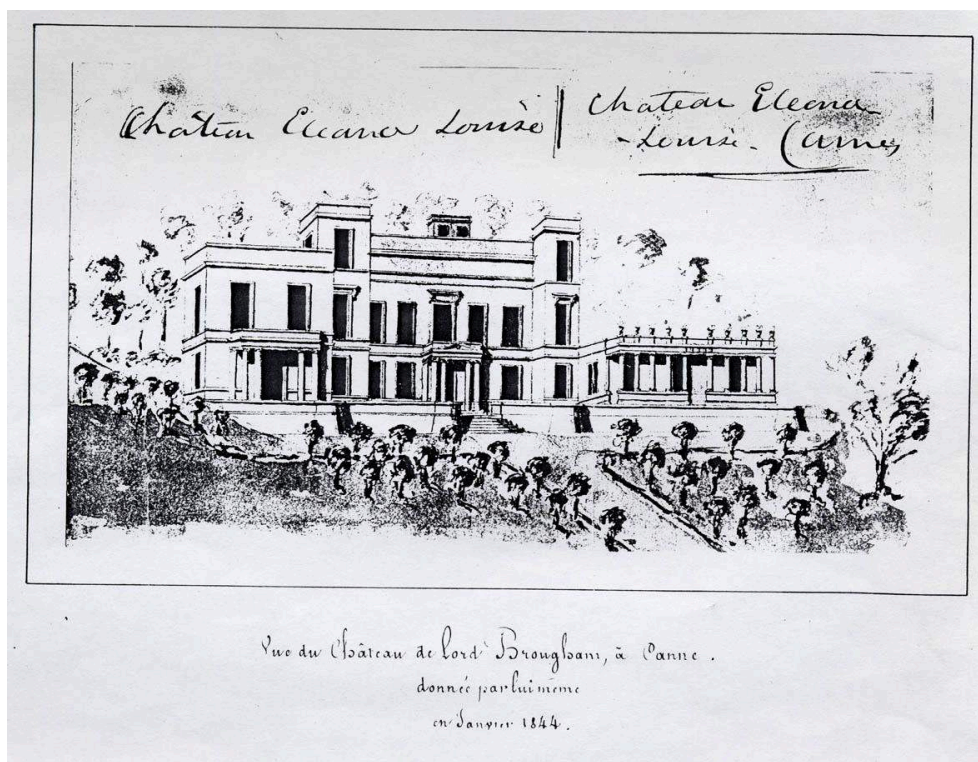 Château Eleanor Louise
Chateau Eleanor
-Louise. Cannes
Vue du Château de Lord Brougham, à Canne.
donnée par lui même
en Janvier 1844.